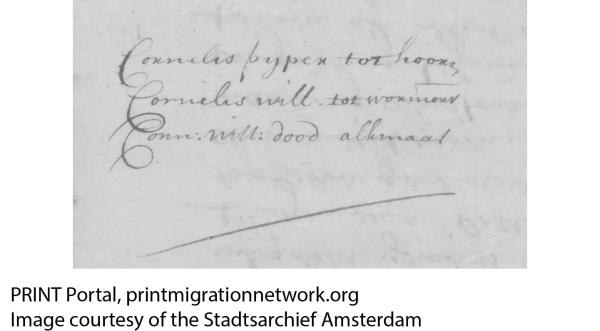 Cornelis pyper tot hoorn
Cornelis will. tot wormer
Corn: will: dood alkmaar
PRINT Portal, printmigrationnetwork.org
Image courtesy of the Stadtsarchief Amsterdam